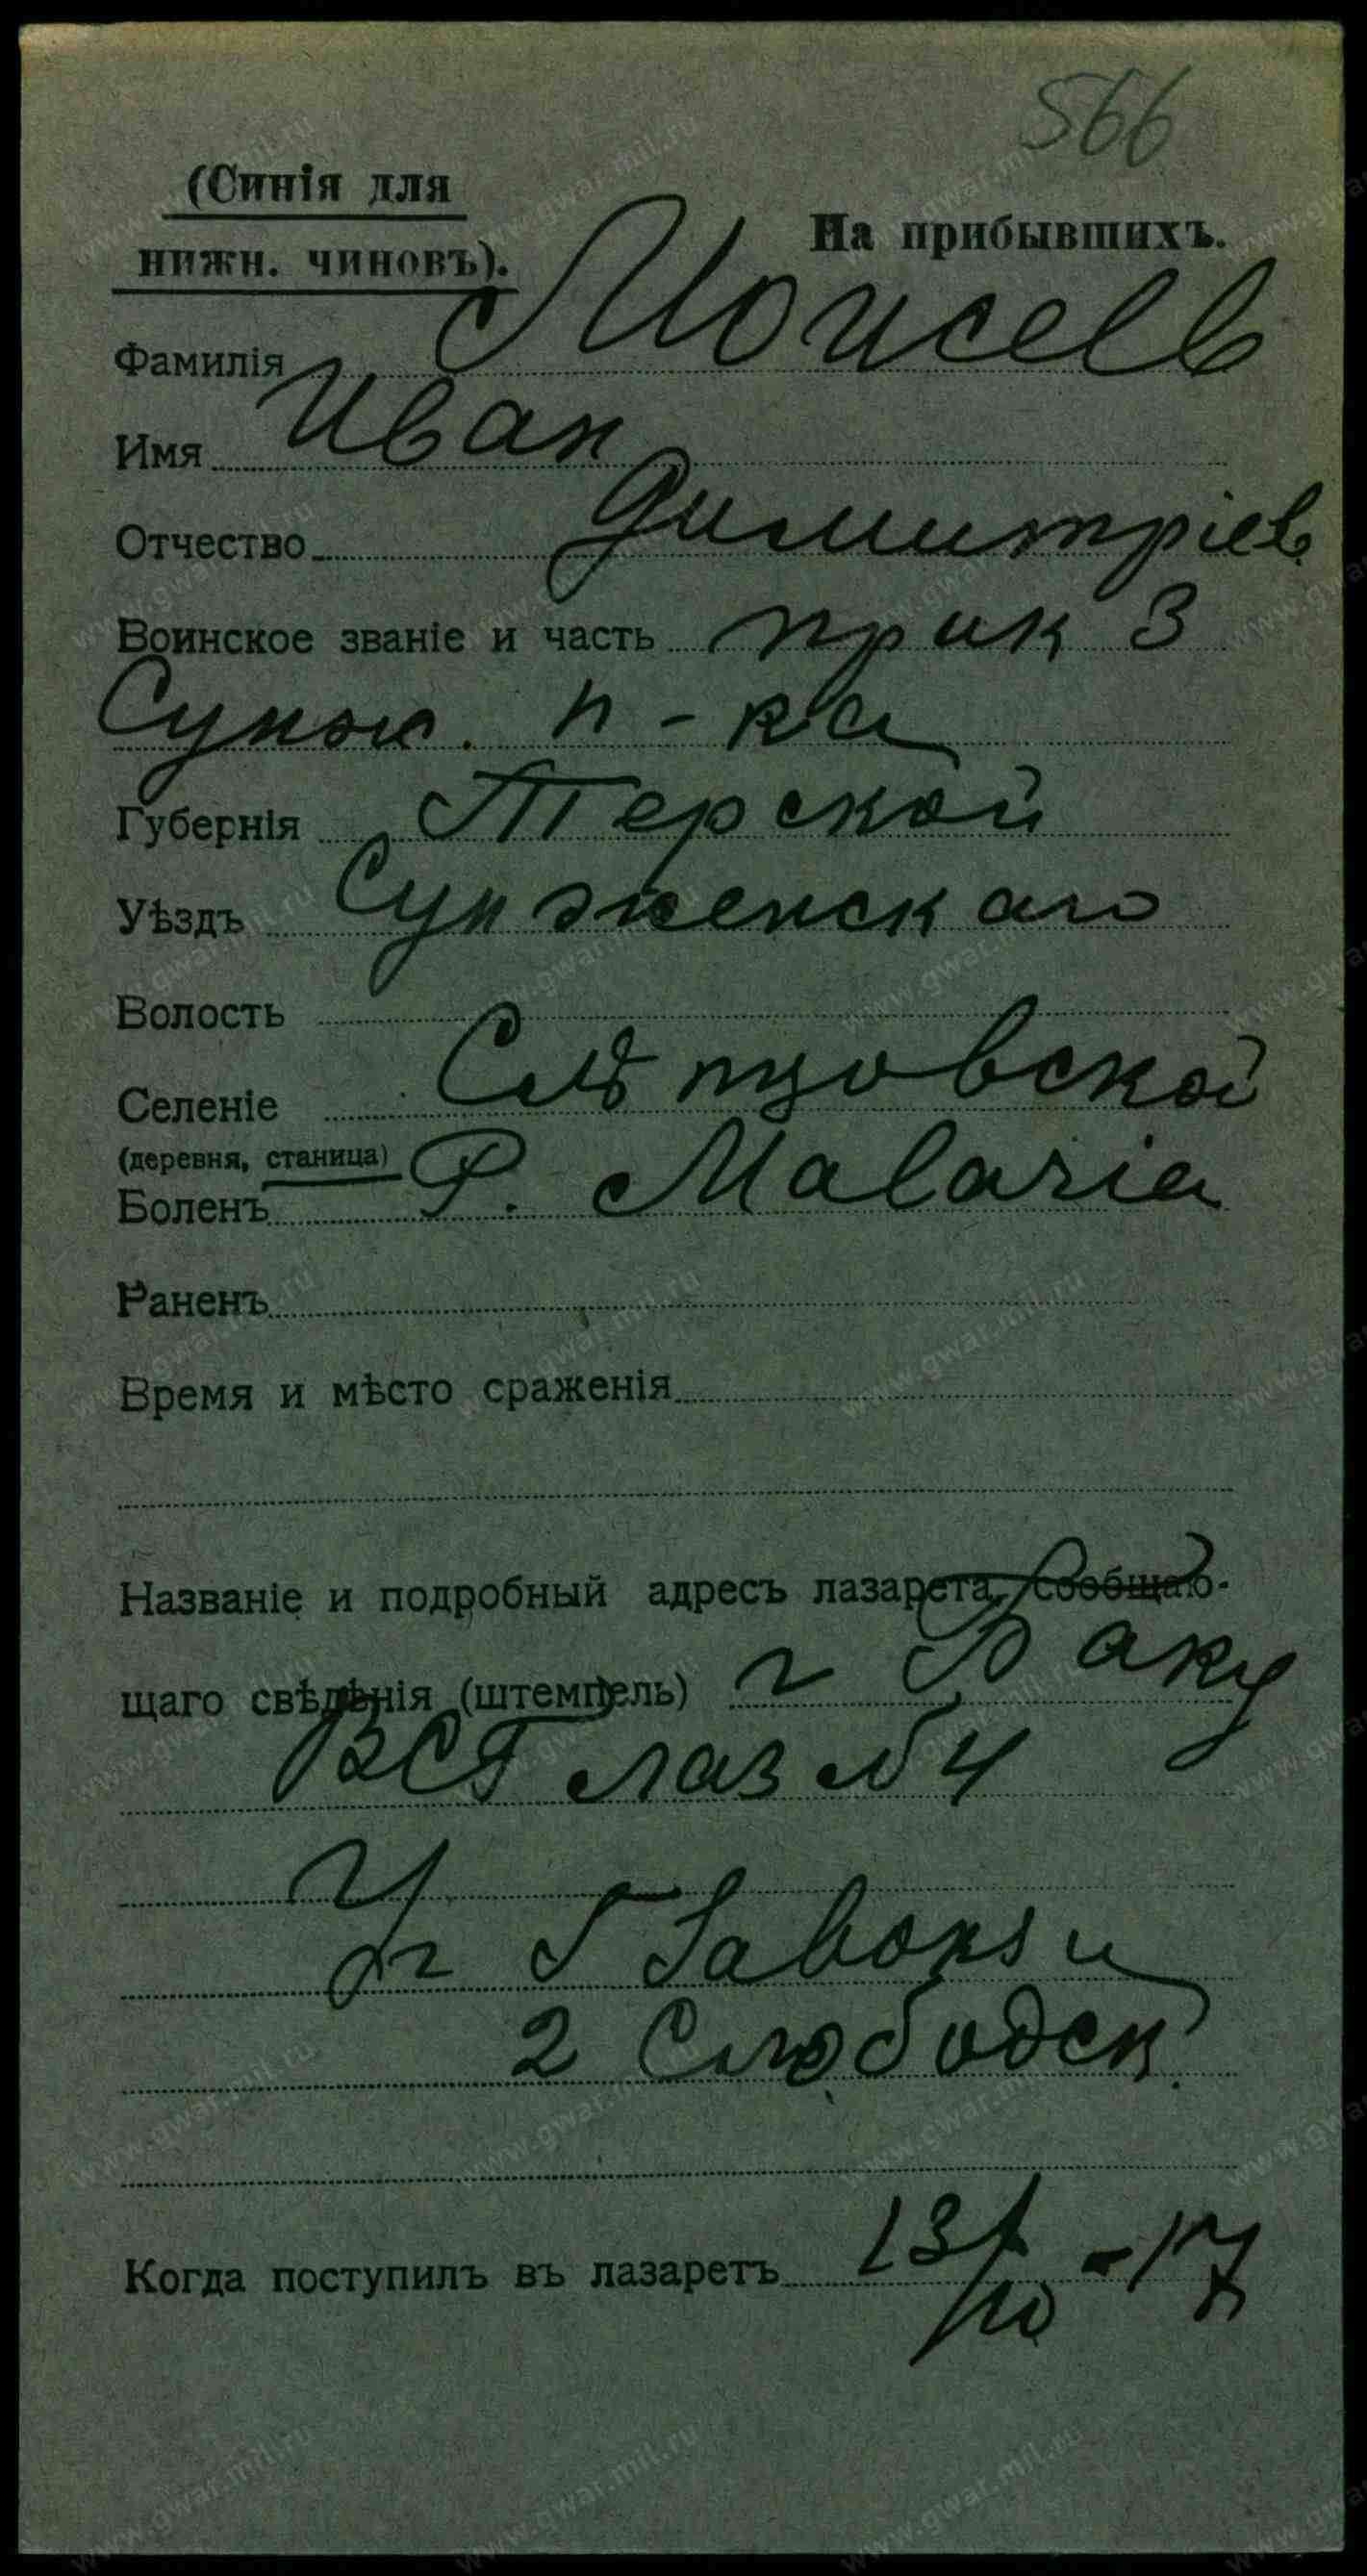 566
(Синія для
нижн. чиновъ).
На прибывшихъ.
Фамилія Моисеев
Имя Иван
Отчество Димитріев
Воинское званіе и часть прик 3
Сунж. п-ка
Губернія Терской
Уѣздъ Сунженскаго
Волость
Селеніе Слѣпцовской
(деревня, станица)
Боленъ F. Malaria
Раненъ
Время и мѣсто сраженія
Названіе и подробный адресъ лазарета, сообщаю-
щаго свѣдѣнія (штемпель) г Баку
ВСГ лаз № 4
2 Слободск.
Когда поступилъ въ лазаретъ 13/10 - 17